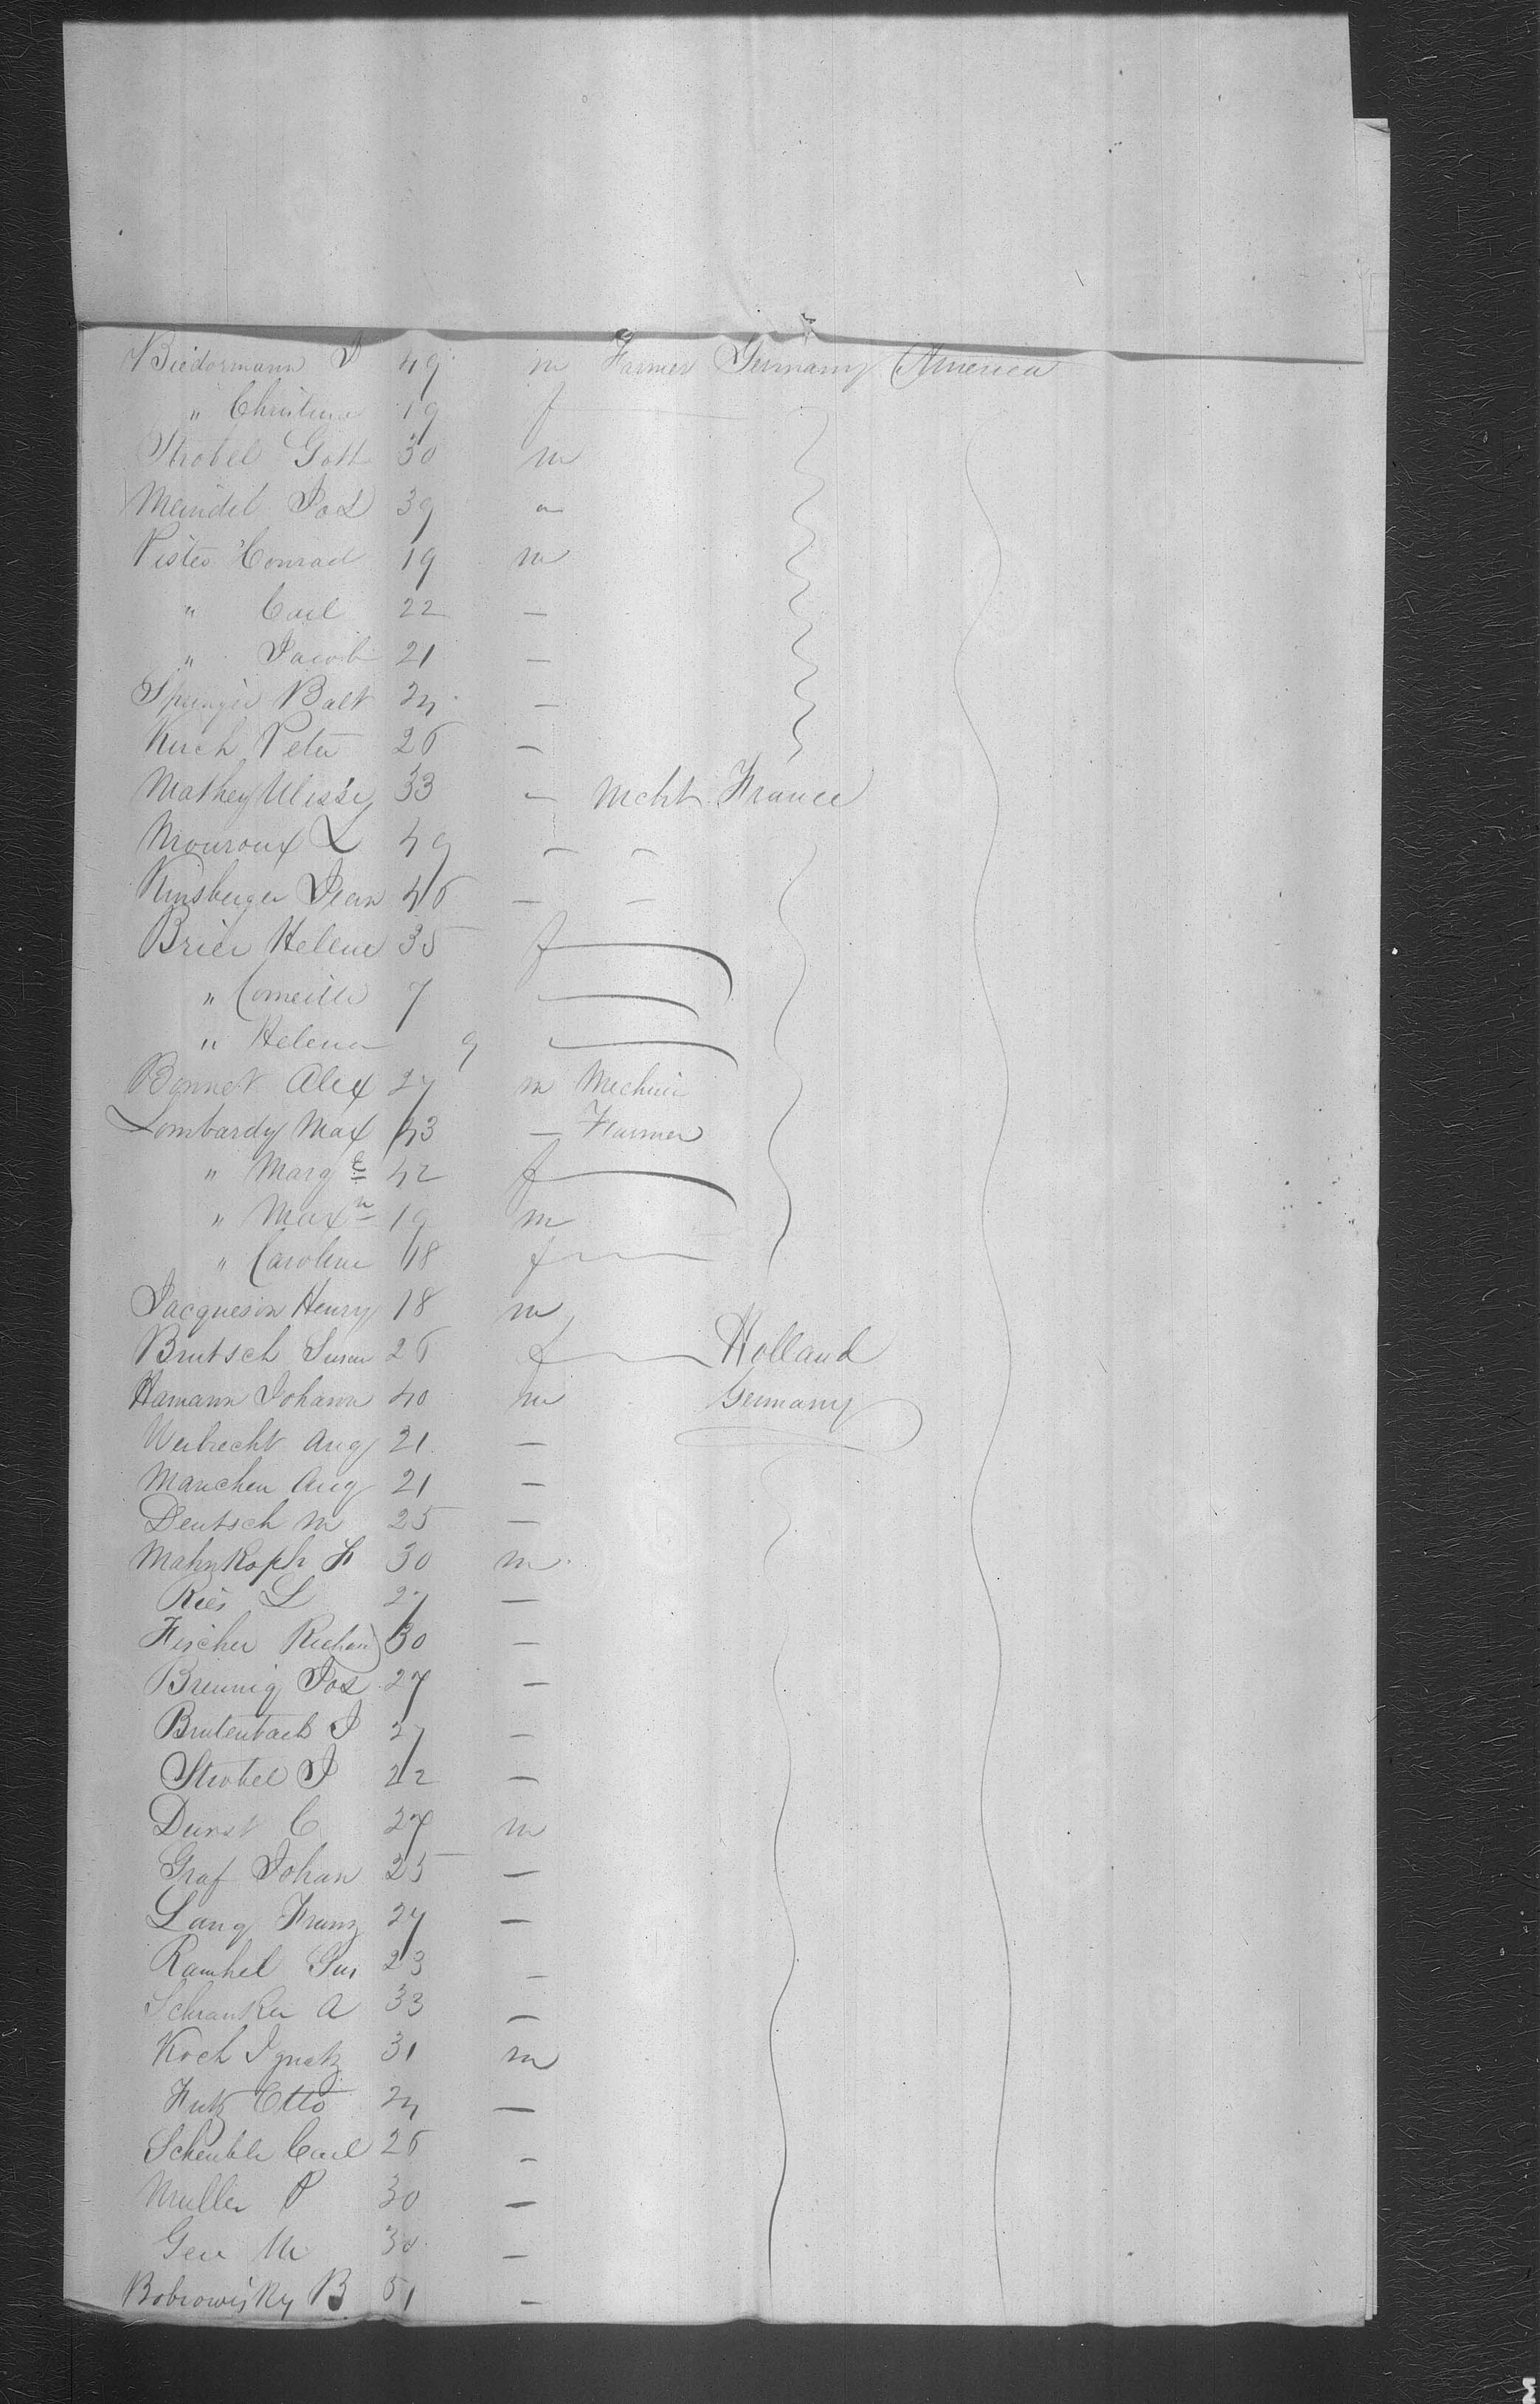 Biedermann J 49 m Farmer Germany America
" Christina 19 f
Strobel Gott 30 m
Meindel Jos 39 -
Pister Conrad 19 m
" Carl 22 -
" Jacob 21 -
Springer Balt 24 -
Kirch Peter 26 -
Mathey Ulisse 33 - Mcht France
Mouroux L 49 - -
Kinsberger Jean 46 - -
Brier Helene 35 f
" Corneille 7
" Helena 9
Bonnet Alex 27 m Mechnic
Lombardy Max 43 - Farmer
" Marg 42 f
" Max 19 m
" Caroline 18 f
Jacqueson Henry 18 m
Brutsch 26 f Holland
Hamann Johann 40 m Germany
Weibrecht Aug 21 -
Manchen Aug 21 -
Deutsch M 25 -
Mahnkoph F 30 m
Ries L 27 -
Fischer Richard 30 -
Breunig Jos 27 -
J 27 -
Strobel J 22 -
Durst C 27 m
Graf Johan 25 -
Lang Franz 27 -
23 -
Schranker A 33 -
Koch Ignatz 31 m
Otto 24 -
Scheuble Carl 26 -
Muller P 30 -
M 30 -
Bobrowisky B 51 -